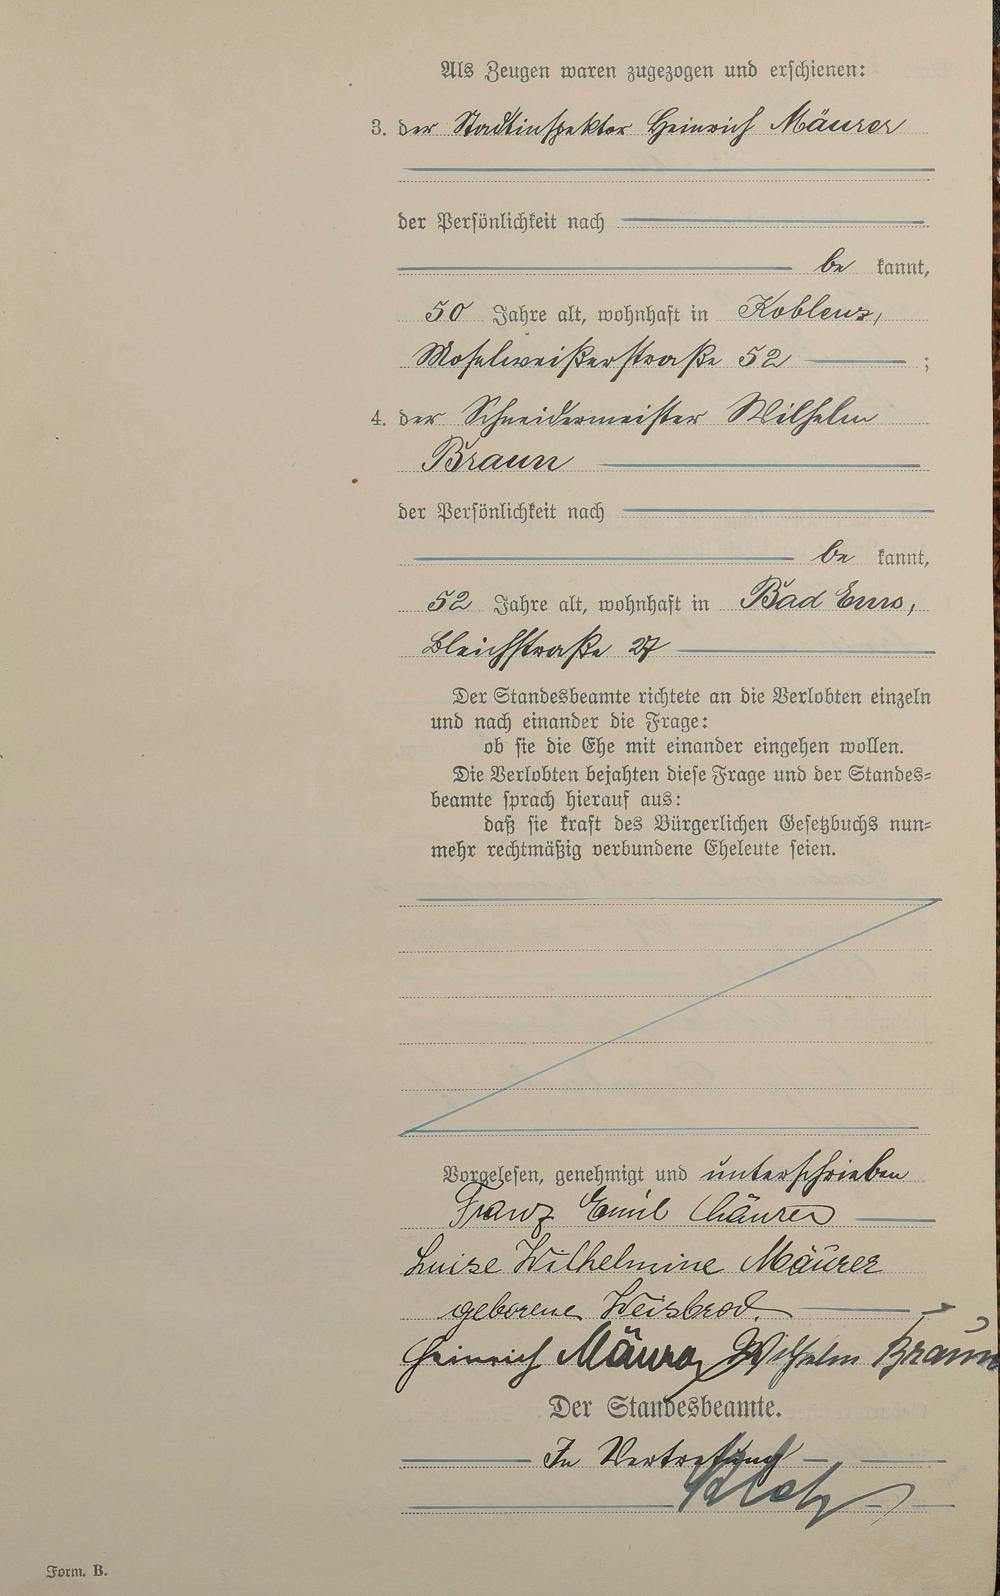 Als Zeugen waren zugezogen und erschienen:
3. der Stadtinspektor Heinrich Mäurer
der Persönlichkeit nach
be kannt,
50 Jahre alt, wohnhaft in Koblenz,
Moselweißerstraße 52 ;
4. der Schneidermeister Wilhelm
Braun
der Persönlichkeit nach
be kannt,
52 Jahre alt, wohnhaft in Bad Ems,
Bleichstraße 27
Der Standesbeamte richtete an die Verlobten einzeln
und nach einander die Frage:
ob sie die Ehe mit einander eingehen wollen.
Die Verlobten bejahten diese Frage und der Standes=
beamte sprach hierauf aus:
daß sie kraft des Bürgerlichen Gesetzbuchs nun=
mehr rechtmäßig verbundene Eheleute seien.
Vorgelesen, genehmigt und unterschrieben
Franz Emil Mäurer
Luise Wilhelmine Mäurer
geborene Weisbrod.
Heinrich Mäurer Wilhelm Braun
Der Standesbeamte.
In Vertretung
Form. B.